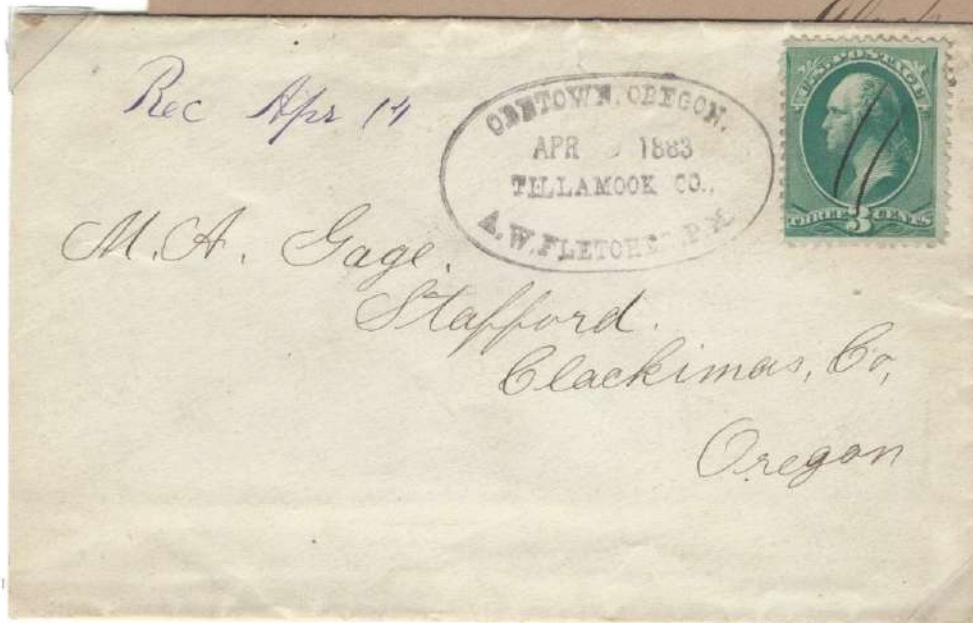 Rec Apr 14
ORETOWN, OREGON.
APR 1883
TILLAMOOK CO.,
A. W. FLETCHER P M
U.S. POSTAGE
THREE 3 CENTS
M. A. Gage.
Stafford.
Clackimas, Co,
Oregon